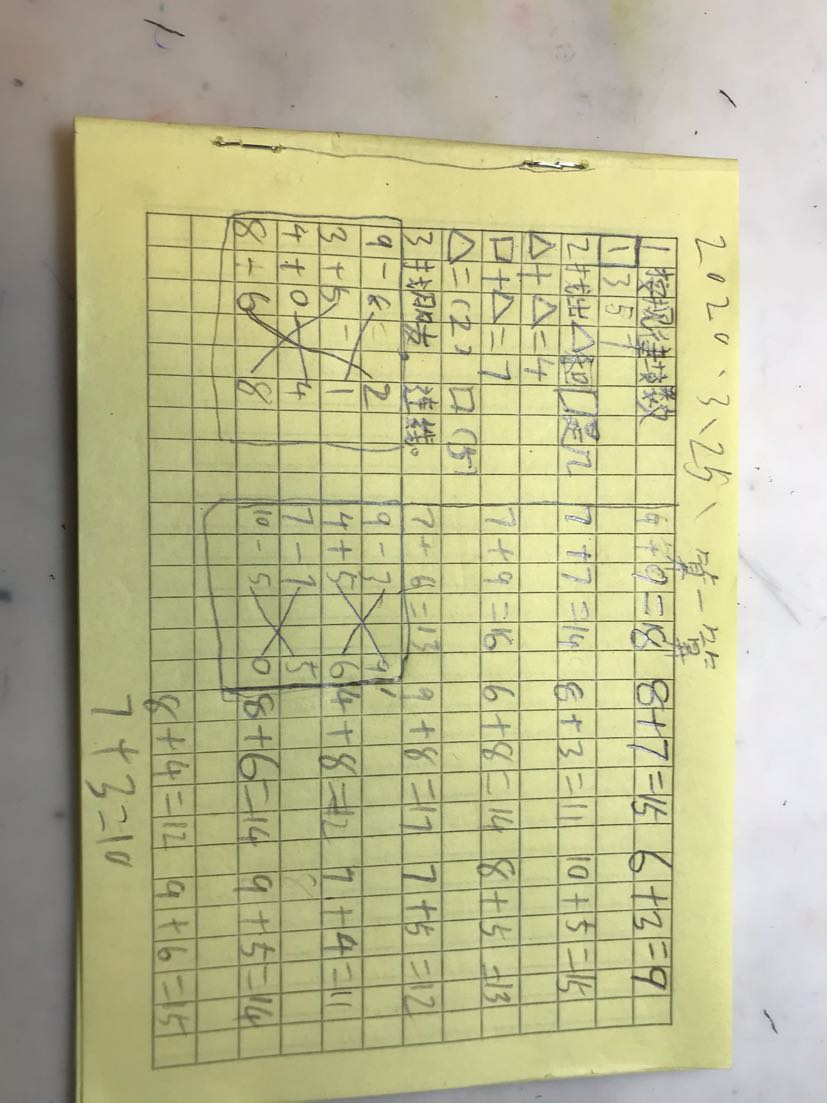 2020、3、25、 算一算
1 按规律填数
1 3 5 7
2 找出△和口是几
△+△=4
口+△=7
△=(2) 口(5)
3 找朋友。连线。
9-8= 2
3+5= 1
4+0 4
8-6 8
9+9=18 8+7=15 6+3=9
7+7=14 8+3=11 10+5=15
7+9=16 6+8=14 8+5=13
7+6=13 9+8=17 7+5=12
9-3 9
4+5 6
7-7 5
10-5 0
4+8=12 7+4=11
8+6=14 9+5=14
8+4=12 9+6=15
7+3=10